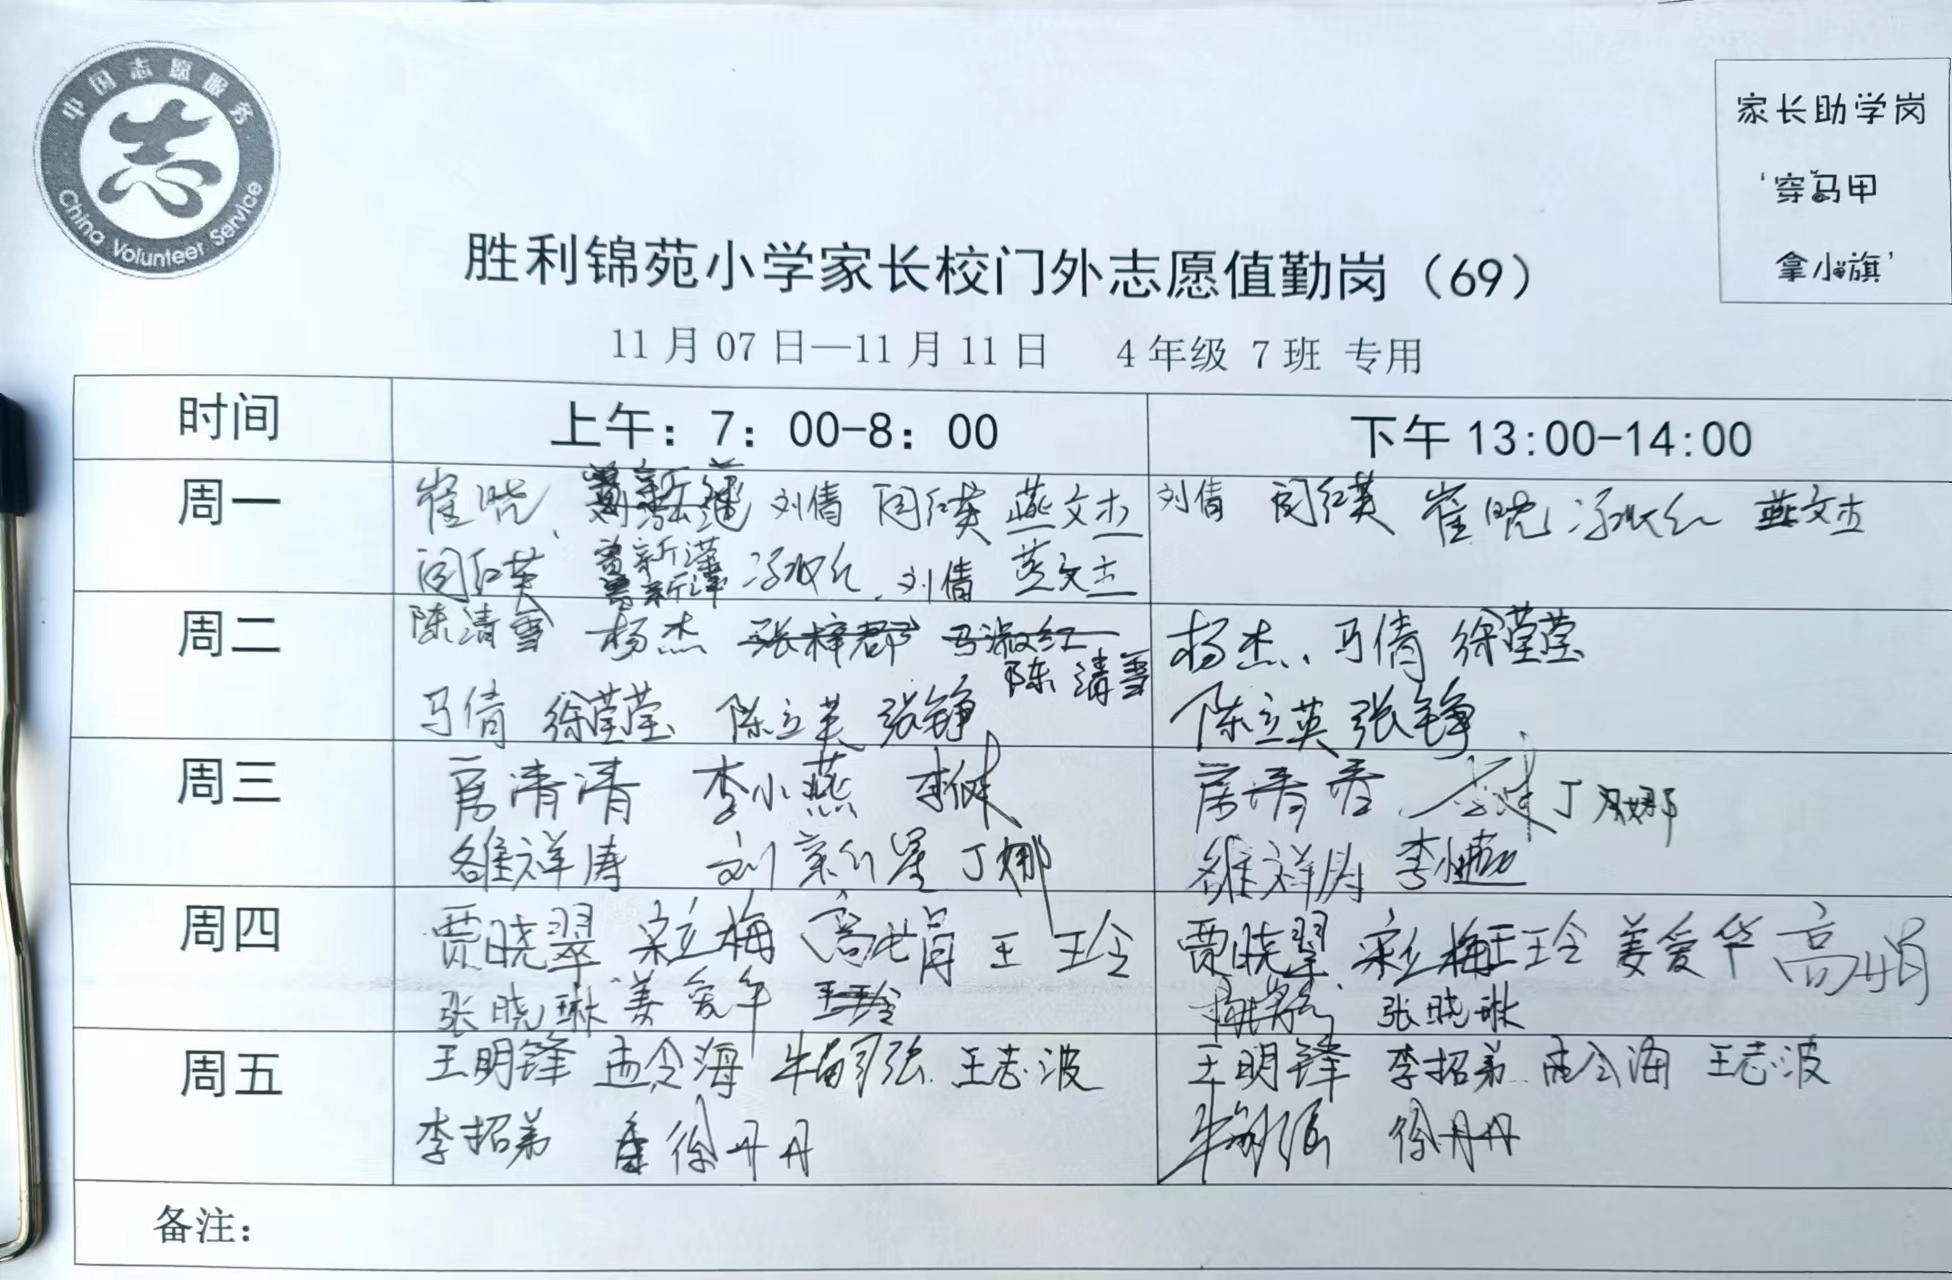 中国志愿服务
志
China Volunteer Service
家长助学岗
'穿马甲
拿小旗'
胜利锦苑小学家长校门外志愿值勤岗（69）
11月07日—11月11日 4年级 7班 专用
时间 上午：7：00-8：00 下午13:00-14:00
周一 崔晓 刘倩 闫红英 燕文杰 刘倩 闫红英 崔晓 冯淑红 燕文杰
闫红英 曹新萍 冯淑红 刘倩 燕文杰
周二 陈清雪 杨杰 张梓郡 马淑红 杨杰 马倩 徐莹莹
陈清雪
马倩 徐莹莹 陈立英 张铮 陈立英 张铮
周三 房清清 李小燕 李健 房清香 李健 丁娜
雒祥涛 刘新星 丁娜 雒祥涛 李小燕
周四 贾晓翠 宋立梅 高娟 王 王玲 贾晓翠 宋立梅 王玲 姜爱华 高娟
张晓琳 姜爱华 王玲 张晓琳
周五 王明锋 孟令海 王志波 王明锋 李招弟 孟令海 王志波
李招弟 徐丹丹 徐丹丹
备注：